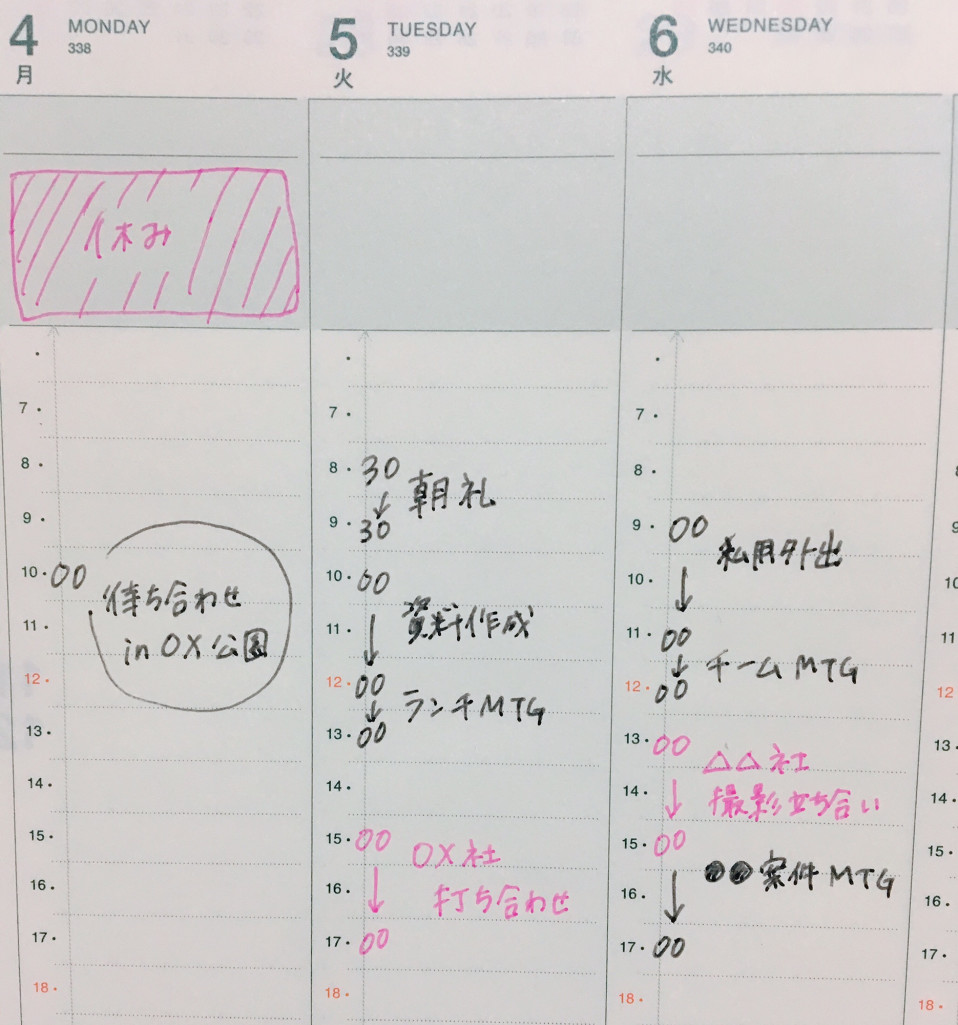 4 MONDAY
338
月
休み
7
8
9
10 00 待ち合わせ
in OX公園
11
12
13
14
15
16
17
18
5 TUESDAY
339
火
7
8 30 朝礼
9 30
10 00
資料作成
11
12 00
ランチMTG
13 00
14
15 00
OX社
打ち合わせ
16
17 00
18
6 WEDNESDAY
340
水
7
8
9 00
私用外出
10
11 00
チームMTG
12 00
13 00
△△社
撮影立ち合い
14
15 00
●●案件MTG
16
17 00
18
9
10
11
12
13
14
15
16
17
18